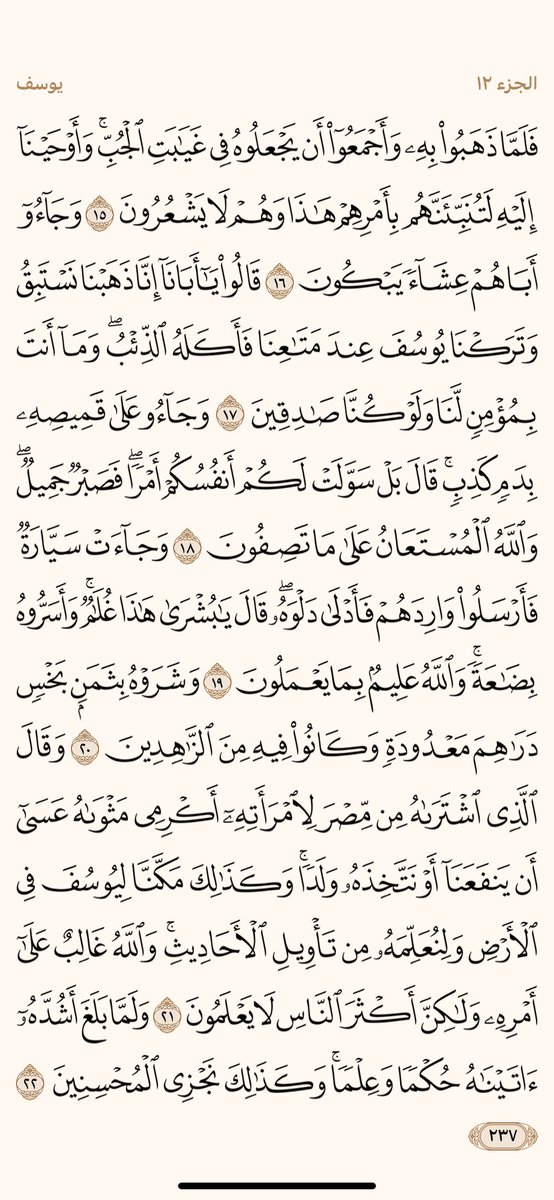 الجزء ١٢
يوسف
فَلَمَّا ذَهَبُوا۟ بِهِۦ وَأَجْمَعُوٓا۟ أَن يَجْعَلُوهُ فِى غَيَـٰبَتِ ٱلْجُبِّ ۚ وَأَوْحَيْنَآ
إِلَيْهِ لَتُنَبِّئَنَّهُم بِأَمْرِهِمْ هَـٰذَا وَهُمْ لَا يَشْعُرُونَ ١٥ وَجَآءُوٓ
أَبَاهُمْ عِشَآءً يَبْكُونَ ١٦ قَالُوا۟ يَـٰٓأَبَانَآ إِنَّا ذَهَبْنَا نَسْتَبِقُ
وَتَرَكْنَا يُوسُفَ عِندَ مَتَـٰعِنَا فَأَكَلَهُ ٱلذِّئْبُ ۖ وَمَآ أَنتَ
بِمُؤْمِنٍ لَّنَا وَلَوْ كُنَّا صَـٰدِقِينَ ١٧ وَجَآءُو عَلَىٰ قَمِيصِهِۦ
بِدَمٍ كَذِبٍ ۚ قَالَ بَلْ سَوَّلَتْ لَكُمْ أَنفُسُكُمْ أَمْرًا ۖ فَصَبْرٌ جَمِيلٌ ۖ
وَٱللَّهُ ٱلْمُسْتَعَانُ عَلَىٰ مَا تَصِفُونَ ١٨ وَجَآءَتْ سَيَّارَةٌ
فَأَرْسَلُوا۟ وَارِدَهُمْ فَأَدْلَىٰ دَلْوَهُۥ ۖ قَالَ يَـٰبُشْرَىٰ هَـٰذَا غُلَـٰمٌ ۚ وَأَسَرُّوهُ
بِضَـٰعَةً ۚ وَٱللَّهُ عَلِيمٌۢ بِمَا يَعْمَلُونَ ١٩ وَشَرَوْهُ بِثَمَنٍۭ بَخْسٍ
دَرَٰهِمَ مَعْدُودَةٍ وَكَانُوا۟ فِيهِ مِنَ ٱلزَّٰهِدِينَ ٢٠ وَقَالَ
ٱلَّذِى ٱشْتَرَىٰهُ مِن مِّصْرَ لِٱمْرَأَتِهِۦٓ أَكْرِمِى مَثْوَىٰهُ عَسَىٰٓ
أَن يَنفَعَنَآ أَوْ نَتَّخِذَهُۥ وَلَدًا ۚ وَكَذَٰلِكَ مَكَّنَّا لِيُوسُفَ فِى
ٱلْأَرْضِ وَلِنُعَلِّمَهُۥ مِن تَأْوِيلِ ٱلْأَحَادِيثِ ۚ وَٱللَّهُ غَالِبٌ عَلَىٰٓ
أَمْرِهِۦ وَلَـٰكِنَّ أَكْثَرَ ٱلنَّاسِ لَا يَعْلَمُونَ ٢١ وَلَمَّا بَلَغَ أَشُدَّهُۥٓ
ءَاتَيْنَـٰهُ حُكْمًا وَعِلْمًا ۚ وَكَذَٰلِكَ نَجْزِى ٱلْمُحْسِنِينَ ٢٢
٢٣٧